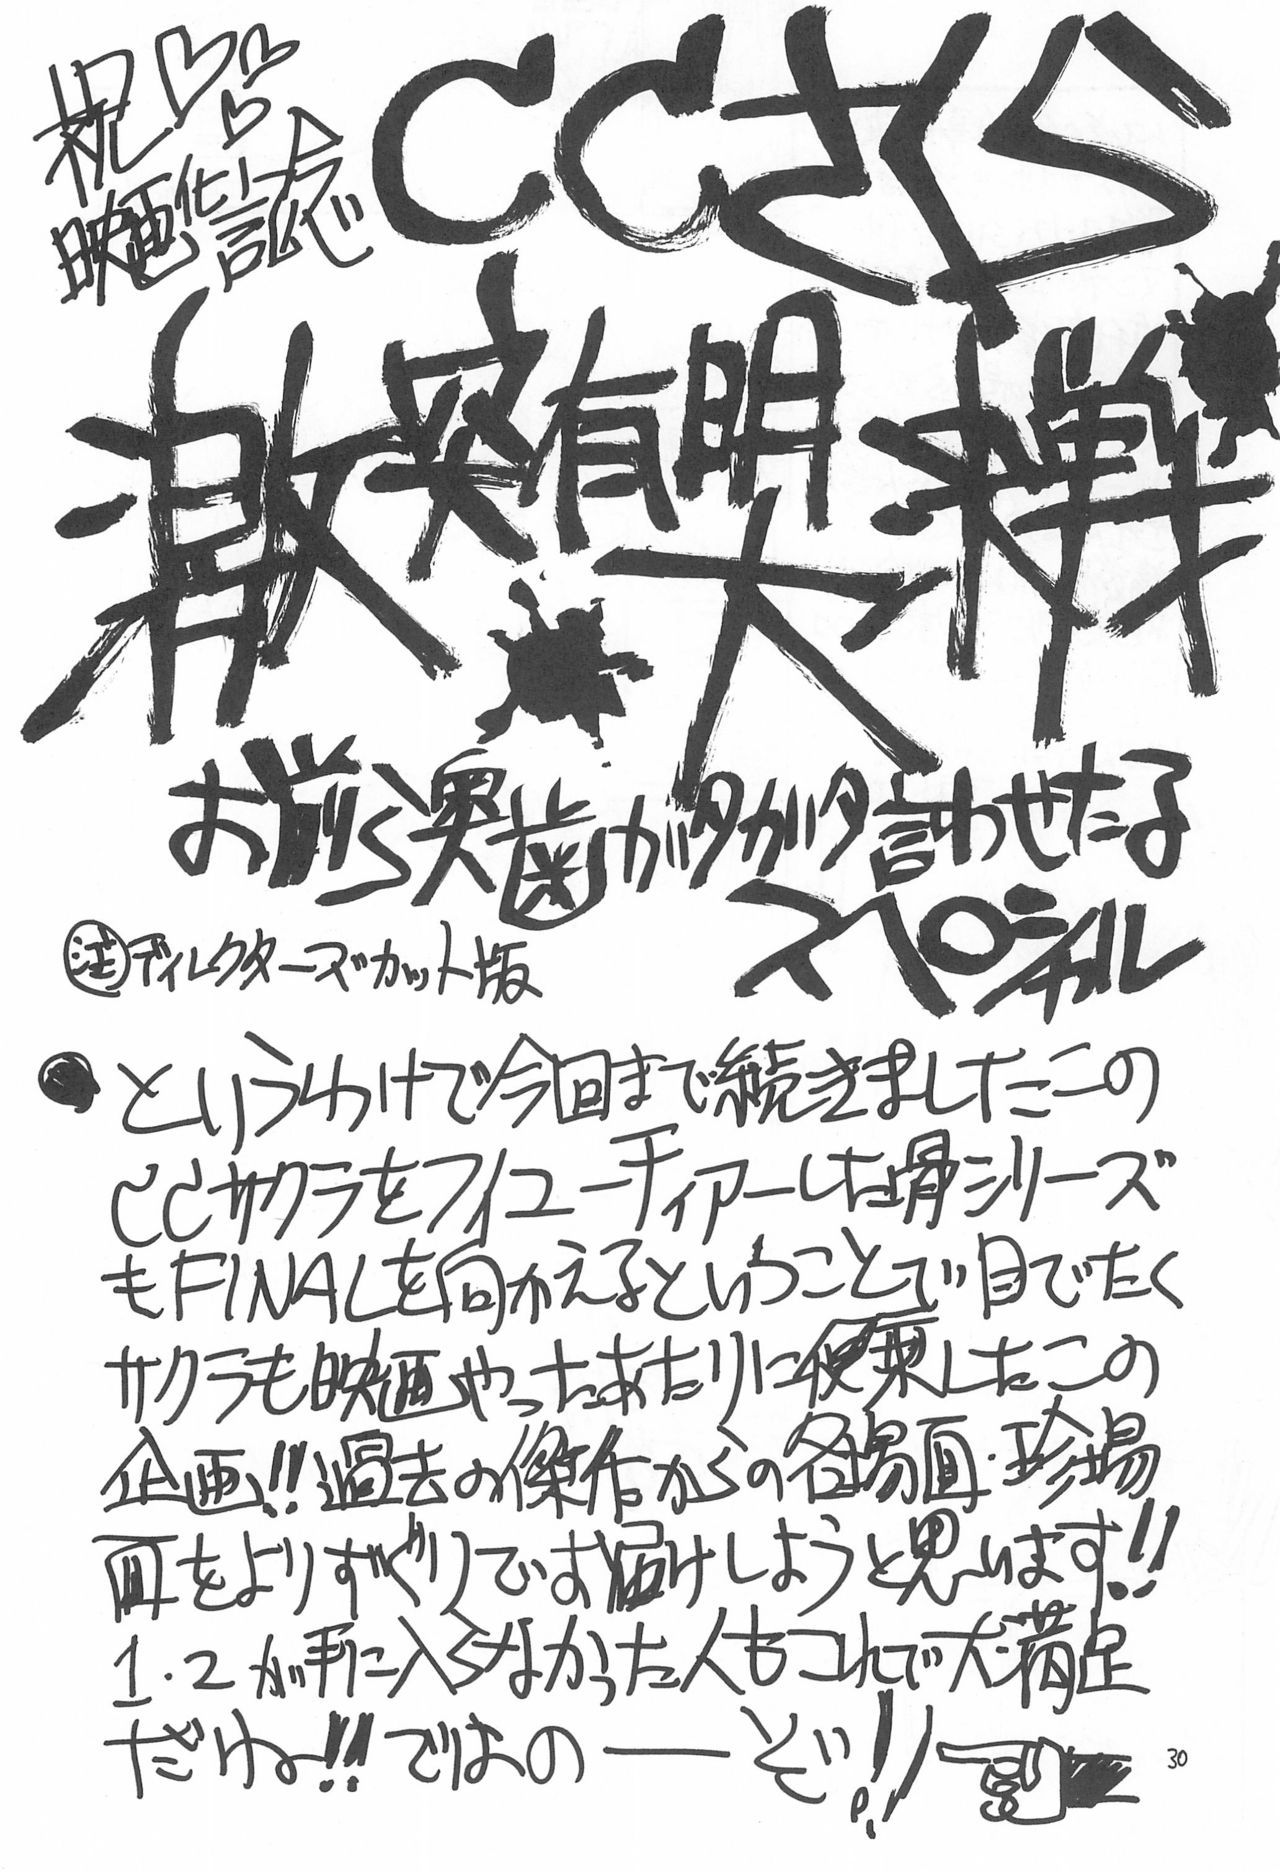 祝♡♡♡
映画化記念で
CCさくら
激突有明
大決戦
お前ら奥歯ガタガタ言わせたる
スペシャル
㊟ディレクターズカット版
●というわけで今回まで続きましたこの
CCサクラをフィーチャーした
シリーズ
もFINALを向かえるということで目でたく
サクラも映画やったあたりに便乗したこの
企画!!過去の傑作からの名場面・珍場
面をよりすぐりでお届けしようと思います!!
1・2が手に入らなかった人もこれで大満足
だけね!!ではの――ぞい!!
30